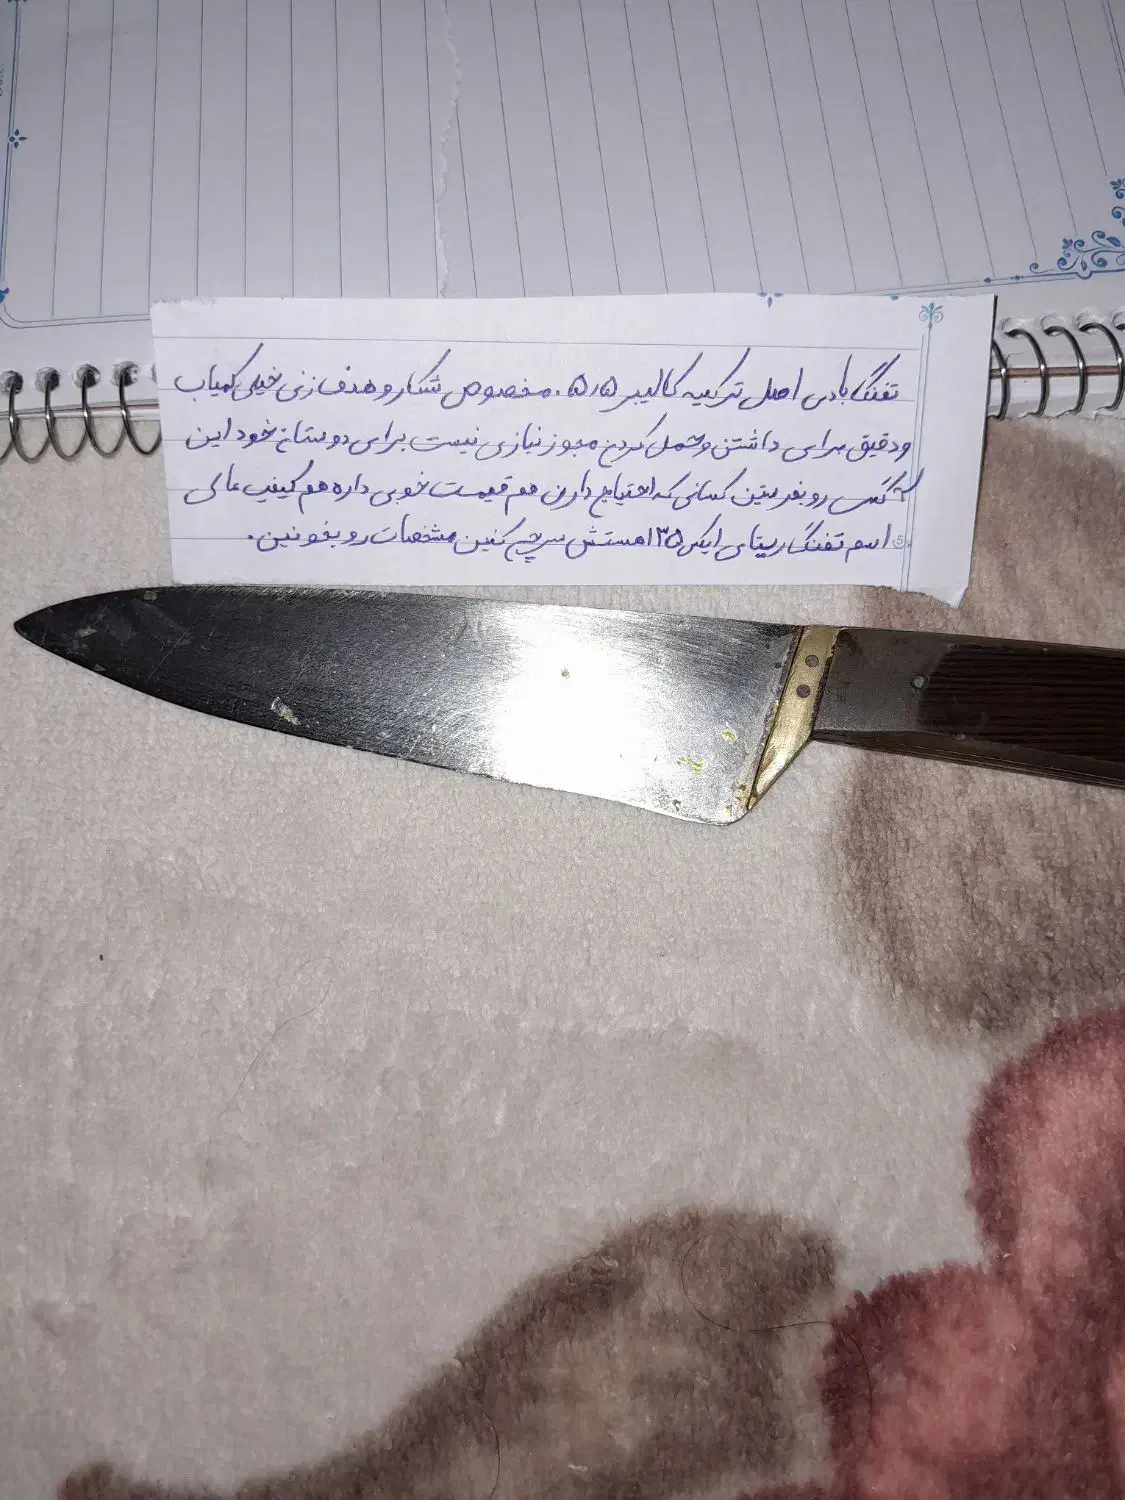 تفنگ بادی اصل ترکیه کالیبر ۵٫۵. مخصوص شکار و هدف زنی خیلی کمیاب
و دقیق برای داشتن و حمل کردن مجوز نیازی نیست برای دوستان خود این
آگهی رو بفرستین کسانی که احتیاج دارن هم قیمت خوبی داره هم کیفیت عالی
اسم تفنگ ریتای ایکس ۱۳۵ هستش سرچ کنین مشخصات رو بخونین.